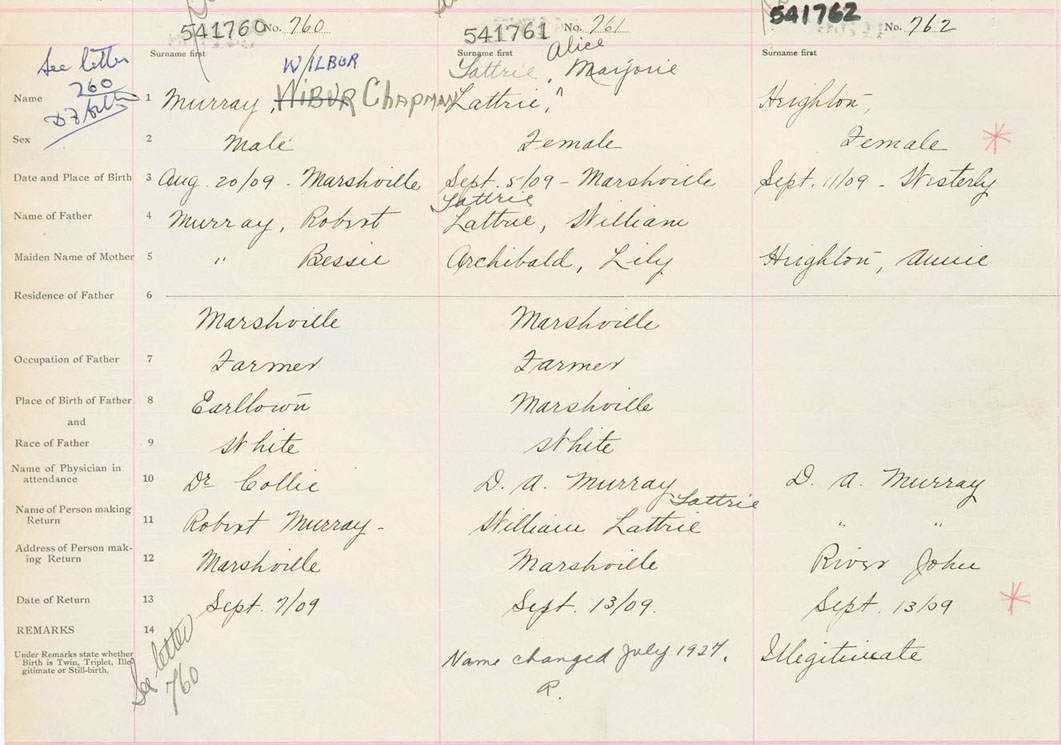 541760 No. 760 541761 No. 761 541762 No. 762
See letter
260
Surname first Surname first Surname first
WILBUR Alice
Tattrie, Marjorie
Name 1 Murray, Wibur Chapman Lattrie, ^ Heighton,
Sex 2 Male Female Female
Date and Place of Birth 3 Aug. 20/09 - Marshville Sept. 5/09 - Marshville Sept. 11/09 - Westerly
Tattrie
Name of Father 4 Murray, Robert Lattrie, William
Maiden Name of Mother 5 " Bessie Archibald, Lily Heighton, Annie
Residence of Father 6
Marshville Marshville
Occupation of Father 7 Farmer Farmer
Place of Birth of Father 8 Earltown Marshville
and
Race of Father 9 White White
Name of Physician in attendance 10 Dr Collie D. A. Murray D. A. Murray
Tattrie
Name of Person making Return 11 Robert Murray - William Lattrie " "
Address of Person mak-
ing Return 12 Marshville Marshville River John
Date of Return 13 Sept. 7/09 Sept. 13/09. Sept. 13/09
REMARKS 14
Under Remarks state whether
Birth is Twin, Triplet, Ille-
gitimate or Still-birth.
See letter
760
Name changed July 1927. Illegitimate
P.